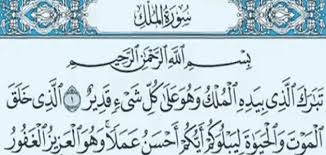 سُورَةُ الْمُلْكِ
بِسْمِ اللَّهِ الرَّحْمَٰنِ الرَّحِيمِ
تَبَٰرَكَ الَّذِي بِيَدِهِ الْمُلْكُ وَهُوَ عَلَىٰ كُلِّ شَيْءٍ قَدِيرٌ ١ الَّذِي خَلَقَ
الْمَوْتَ وَالْحَيَوٰةَ لِيَبْلُوَكُمْ أَيُّكُمْ أَحْسَنُ عَمَلًا ۚ وَهُوَ الْعَزِيزُ الْغَفُورُ